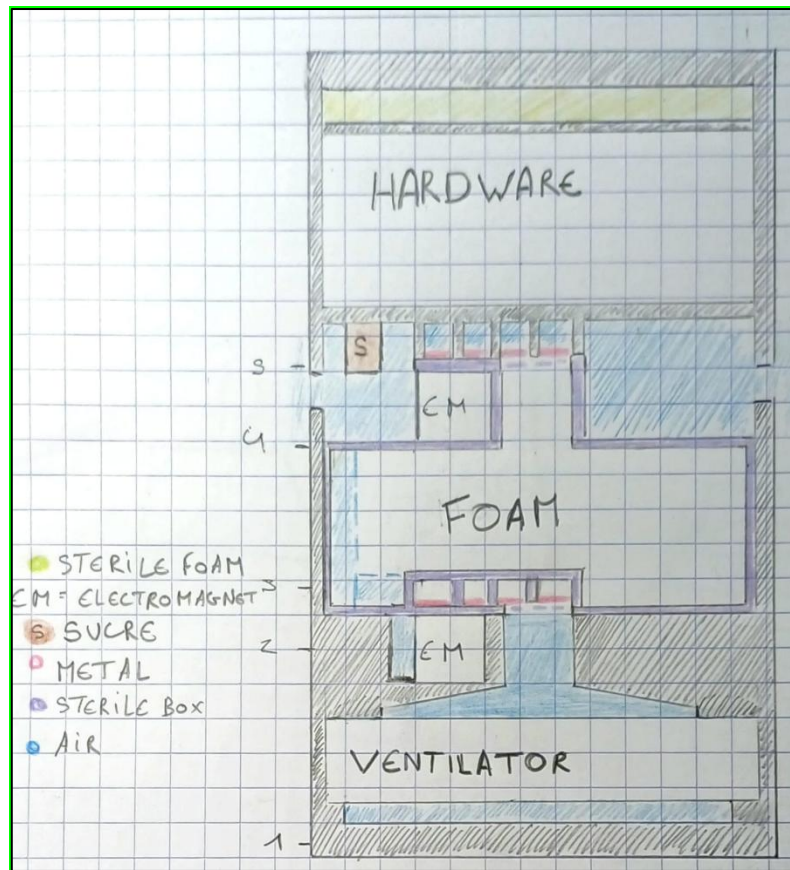 HARDWARE
S
5
EM
4
FOAM
STERILE FOAM
3
EM = ELECTROMAGNET
S SUCRE
2
EM
METAL
STERILE BOX
AIR
VENTILATOR
1